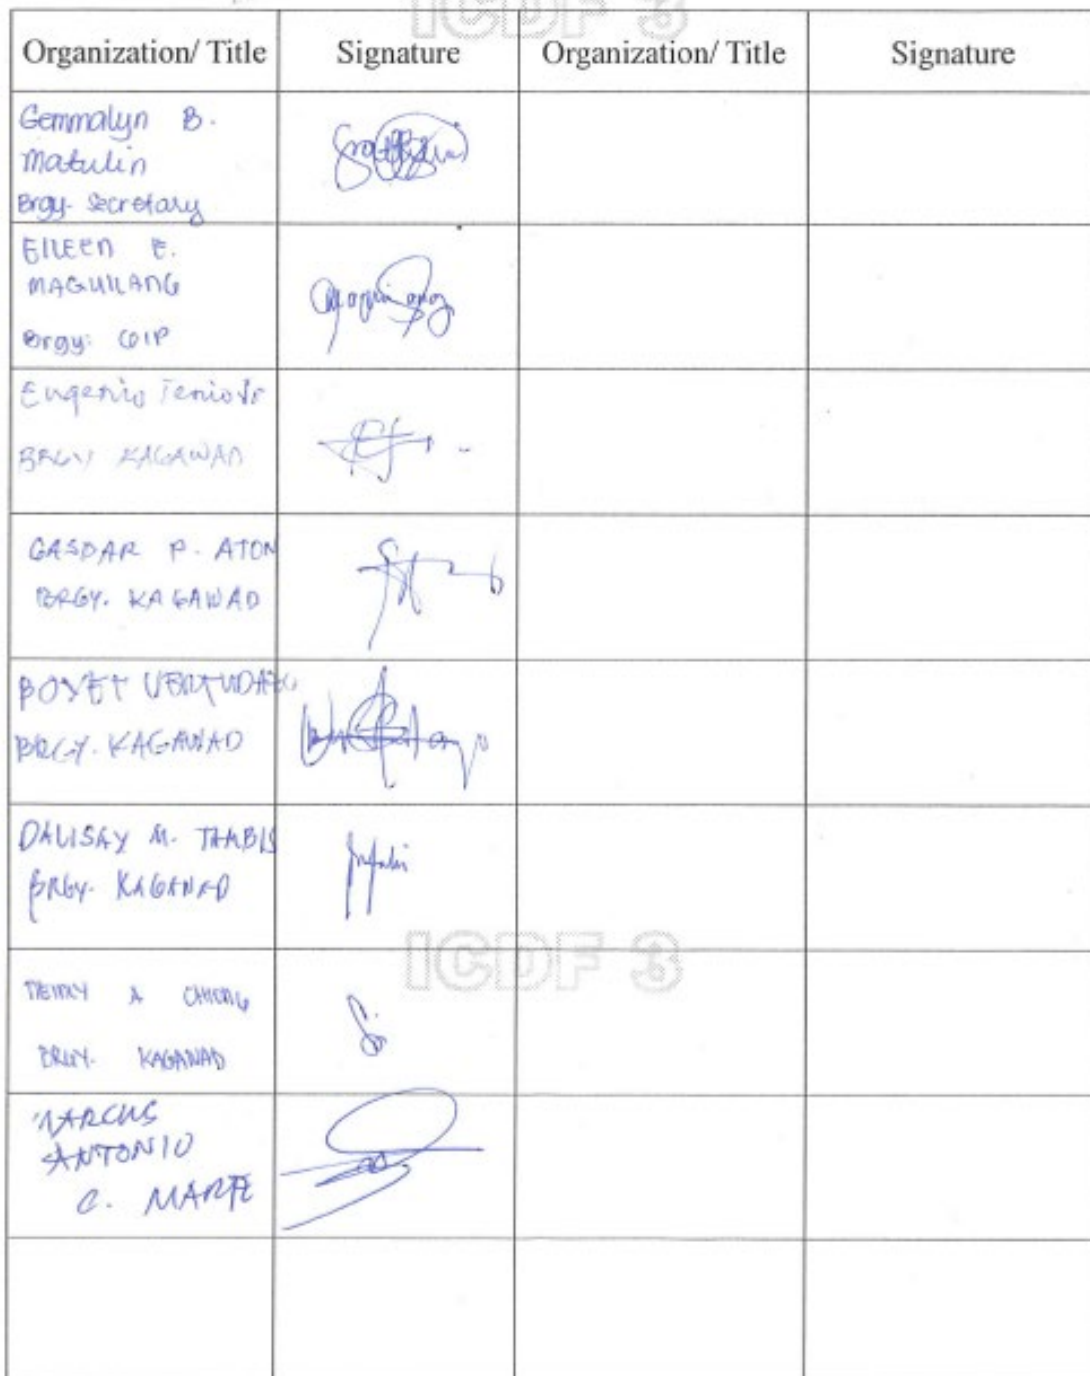 ICDF 3
Organization/ Title Signature Organization/ Title Signature
Gemmalyn B.
Matulin
Brgy. Secretary
EILEEN E.
MAGUILANG
Brgy. GIP
Eugenio Tenio Jr
BRGY KAGAWAD
GASPAR P. ATON
BRGY. KAGAWAD
BOYET VERTUDAZO
BRGY. KAGAWAD
DALISAY M.
BRGY. KAGAWAD
ICDF 3
A
BRGY. KAGAWAD
MARCUS
ANTONIO
C. MARTE